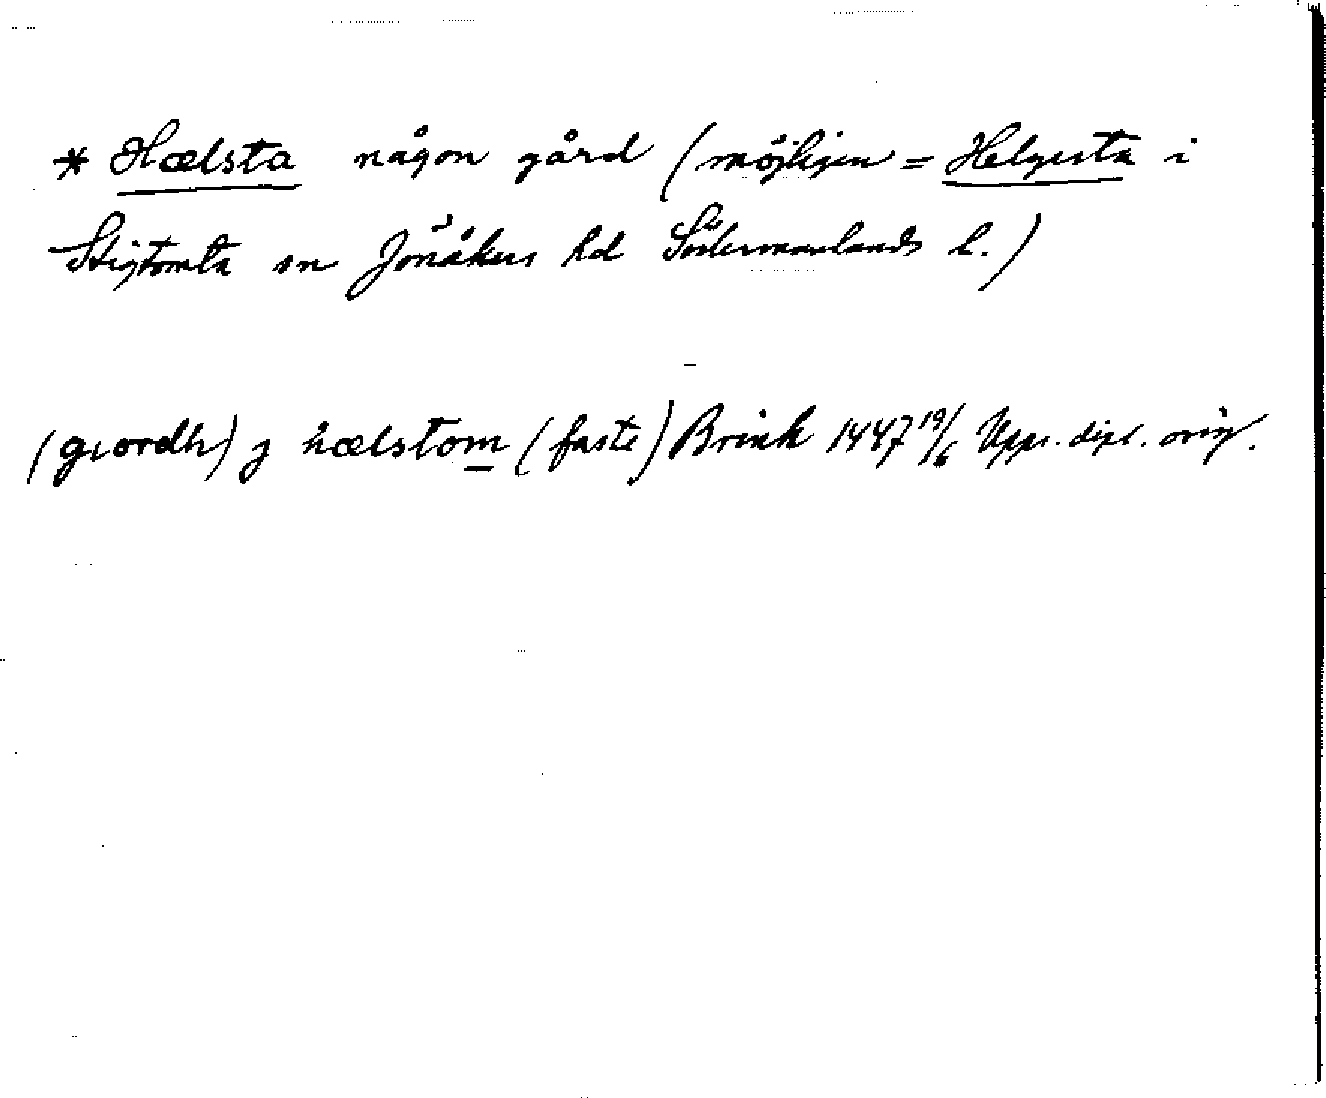 * Hælsta någon gård (möjligen = Helgesta i
Stigtomta sn Jönåkers hd Södermanlands l.)
(giordh) j hælstom (faste) Brink 1447 19/6 Upps. dipl. orig.